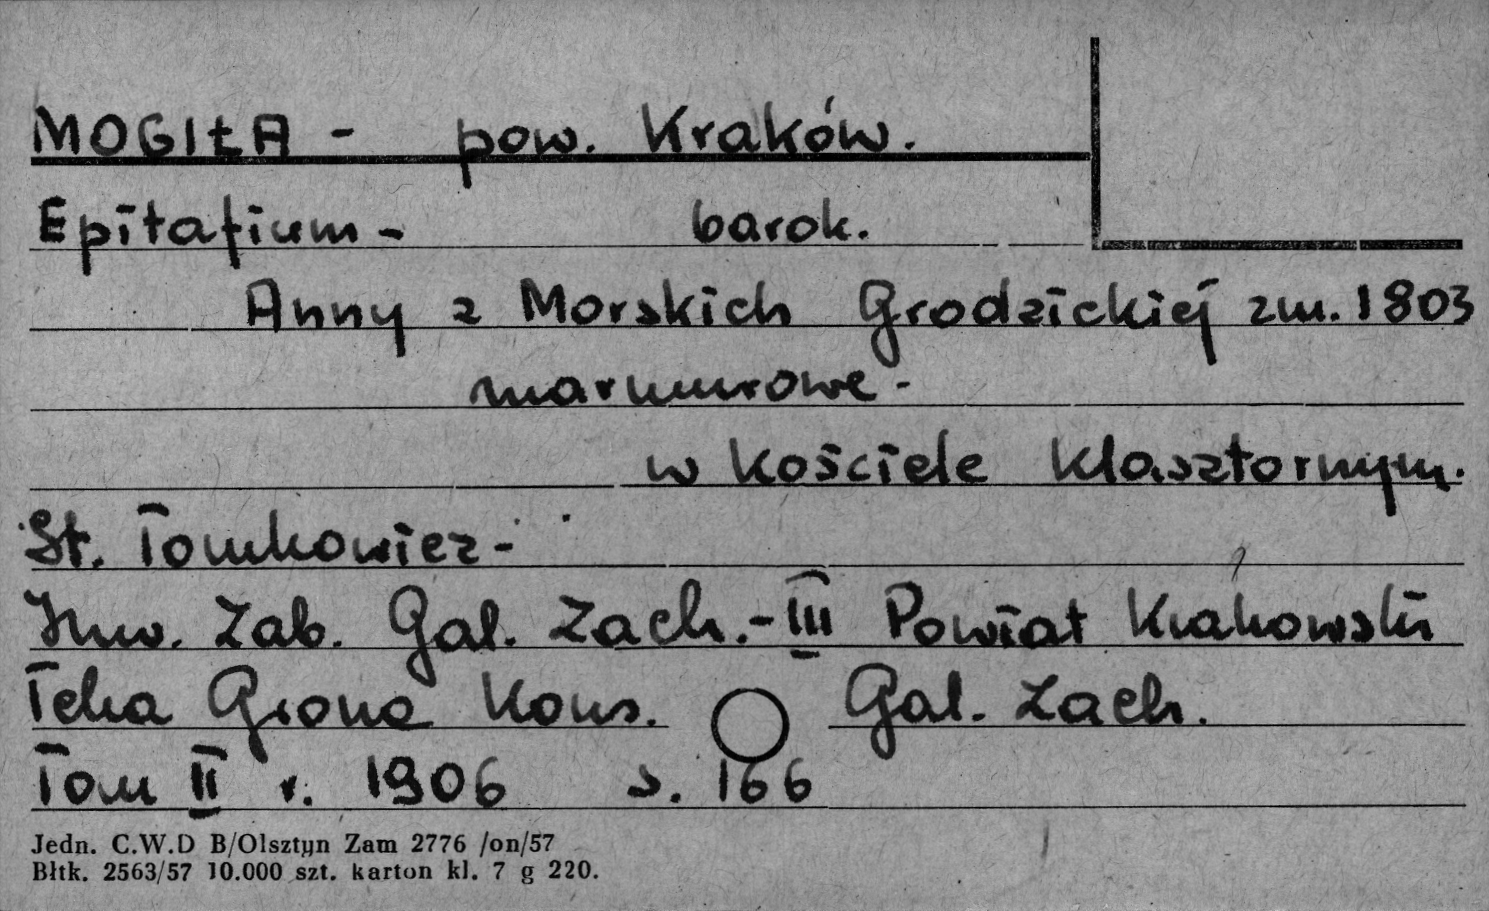 MOGIŁA - pow. Kraków.
Epitafium - barok.
Anny z Morskich Grodzickiej zm. 1803
marmurowe -
w kościele klasztornym.
St. Tomkowicz -
Inw. Zab. Gal. Zach. - III Powiat Krakowski
Teka Grona Kons. Gal. Zach.
Tom II r. 1906 s. 166
Jedn. C.W.D B/Olsztyn Zam 2776 /on/57
Błtk. 2563/57 10.000 szt. karton kl. 7 g 220.